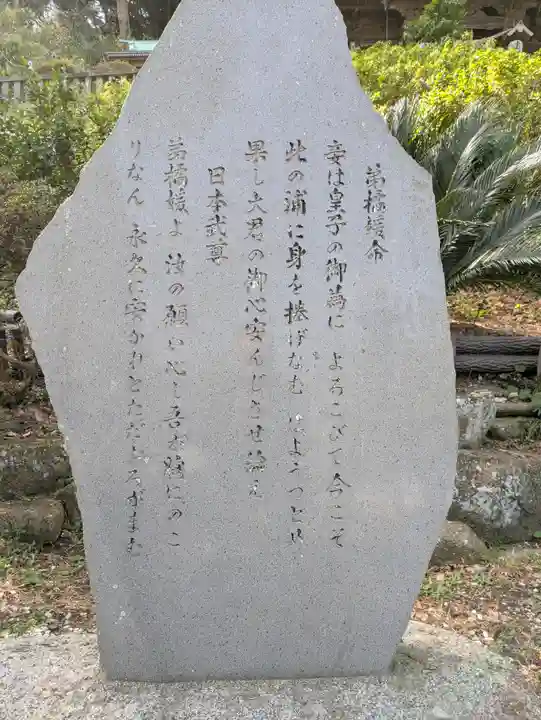 弟橘媛命
妾は皇子の御為に よろこびて今こそ
此の浦に身を捧げなむ はようつとめ
果し大君の御心安んじさせ給え
日本武尊
弟橘媛よ 汝の願い心し吾が胸にのこ
りなん 永久に安かれとただ をがまむ